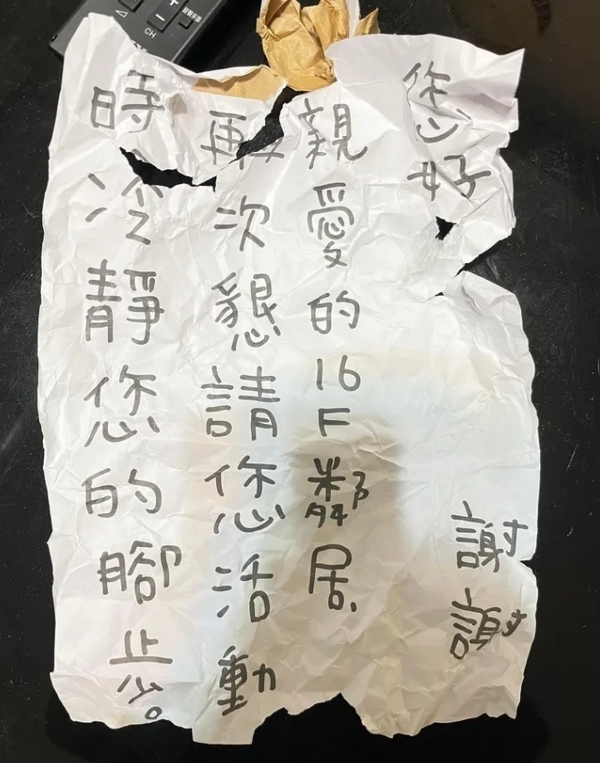 您好
親愛的16F鄰居
再次懇請您活動
時冷靜您的腳步。
謝謝
CH